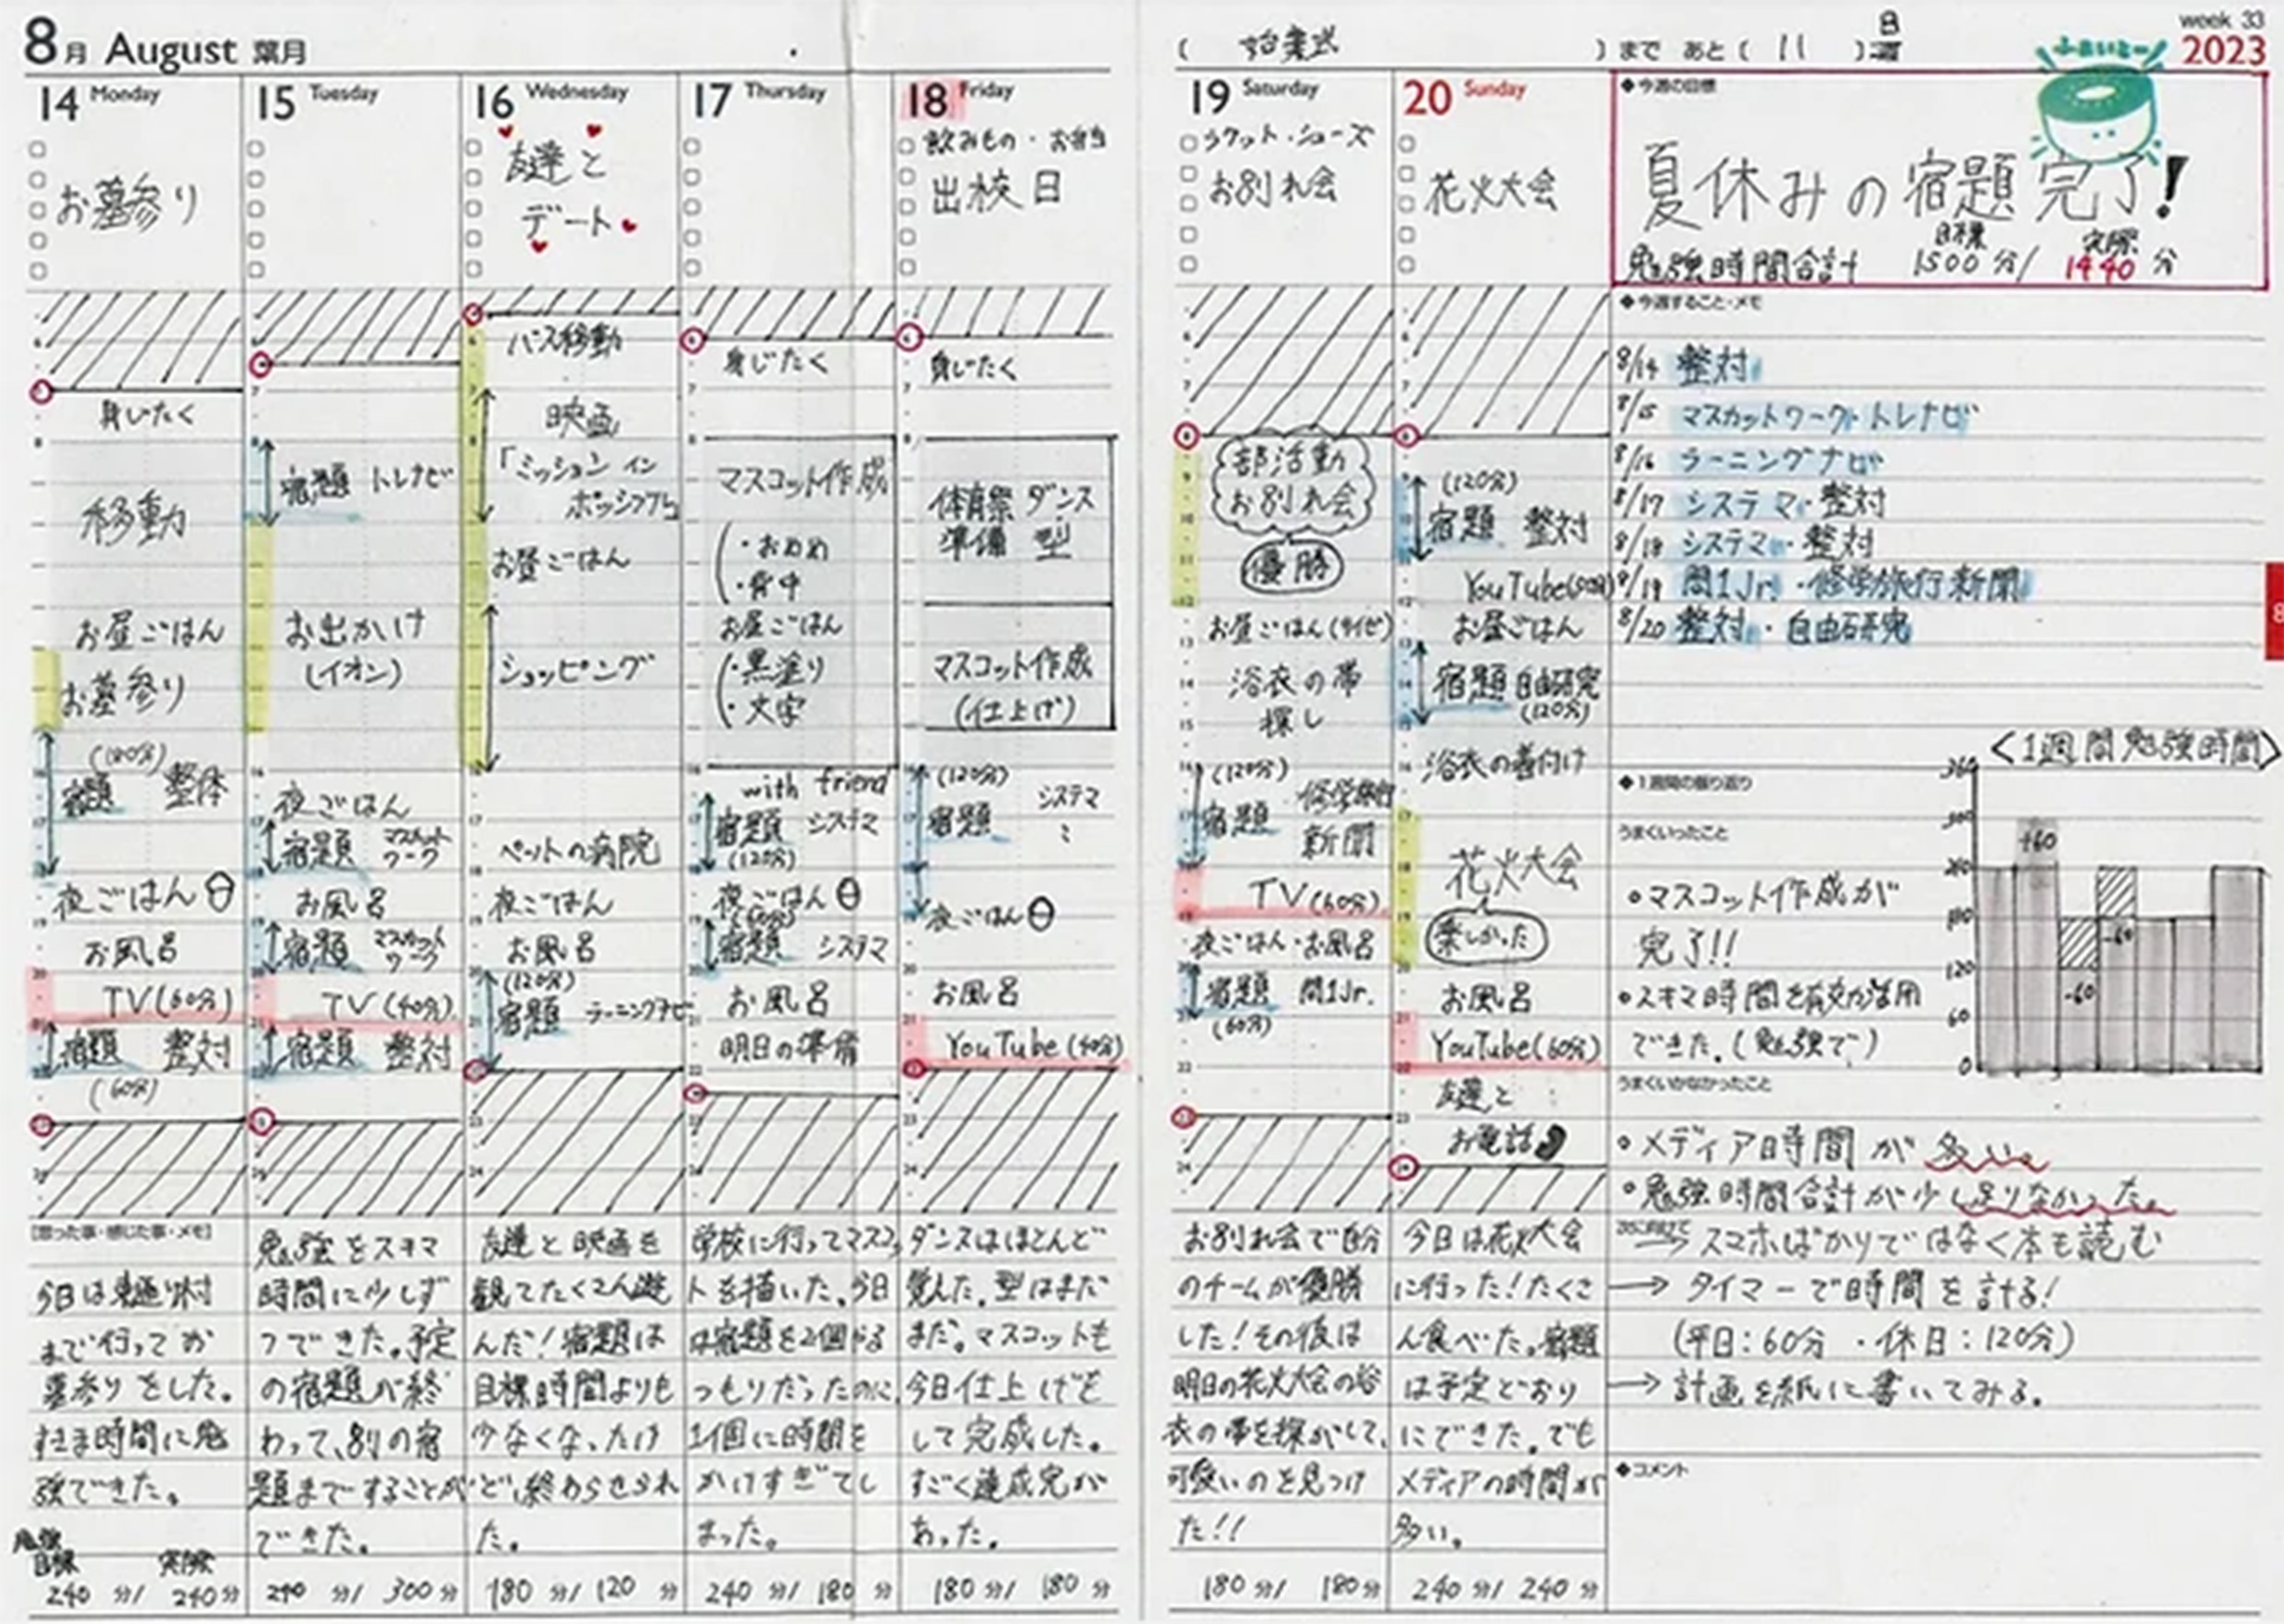 8月 August 葉月
( 始業式 ) まで あと ( 11 ) 日
week 33
2023
ふぁいとー!
14 Monday
お墓参り
15 Tuesday
16 Wednesday
友達と
デート
17 Thursday
18 Friday
飲みもの・お弁当
出校日
19 Saturday
ラケット・シューズ
お別れ会
20 Sunday
花火大会
◆今週の目標
夏休みの宿題完了!
勉強時間合計 目標 1500分/ 実際 1440分
身じたく
移動
お昼ごはん
お墓参り
(180分)
宿題 整体
夜ごはん
お風呂
TV(60分)
宿題 整対
(60分)
宿題 トレナビ
お出かけ
(イオン)
夜ごはん
宿題 マスカットワーク
お風呂
宿題 マスカットワーク
TV(40分)
宿題 整対
バス移動
映画
「ミッション イン
ポッシブル
お昼ごはん
ショッピング
ペットの病院
夜ごはん
お風呂
(120分)
宿題 ラーニングナビ
身じたく
マスコット作成
・おめめ
・背中
お昼ごはん
・黒塗り
・文字
with friend
宿題 システマ
(120分)
夜ごはん
(60分)
宿題 システマ
お風呂
明日の準備
身じたく
体育祭 ダンス
準備 型
マスコット作成
(仕上げ)
(120分)
宿題 システマ
夜ごはん
お風呂
YouTube(40分)
部活動
お別れ会
優勝
お昼ごはん(サイゼ)
浴衣の帯
探し
(120分)
宿題 修学旅行
新聞
TV(60分)
夜ごはん・お風呂
宿題 問1Jr.
(60分)
(120分)
宿題 整対
お昼ごはん
宿題 自由研究
(120分)
浴衣の着付け
花火大会
楽しかった
お風呂
YouTube(60分)
友達と
お電話
◆今週すること・メモ
8/14 整対
8/15 マスカットワーク・トレナビ
8/16 ラーニングナビ
8/17 システマ・整対
8/18 システマ・整対
8/19 問1Jr.・修学旅行新聞
8/20 整対・自由研究
<1週間勉強時間>
360
300
180
120
60
0
+60
-60
-60
◆1週間の振り返り
うまくいったこと
・マスコット作成が
完了!!
・スキマ時間を有効活用
できた。(勉強で)
うまくいかなかったこと
・メディア時間が多い。
・勉強時間合計が少し足りなかった。
次に向けて
→スマホばかりではなく本も読む
→タイマーで時間を計る!
(平日:60分・休日:120分)
→計画を紙に書いてみる。
◆コメント
[思った事・感じた事・メモ]
まで行ってお
墓参りをした。
すきま時間に勉
強できた。
勉強をスキマ
時間に少しず
つできた。予定
の宿題が終
わって、別の宿
題まですることが
できた。
友達と映画を
観てたくさん遊
んだ!宿題は
目標時間よりも
少なくなったけ
ど、終わらせられ
た。
学校に行ってマスコッ
トを描いた。今日
は宿題を2個やる
つもりだったのに、
1個に時間を
かけすぎてし
まった。
ダンスはほとんど
覚えた。型はまだ
まだ。マスコットも
今日仕上げを
して完成した。
すごく達成完が
あった。
お別れ会で自分
のチームが優勝
した!その後は
明日の花火大会の浴
衣の帯を探がして、
可愛いのを見つけ
た!!
今日は花火大会
に行った!たくさ
ん食べた。宿題
は予定どおり
にできた。でも
メディアの時間が
多い。
勉強
目標 実際
240分/ 240分
240分/ 300分
180分/ 120分
240分/ 180分
180分/ 180分
180分/ 180分
240分/ 240分